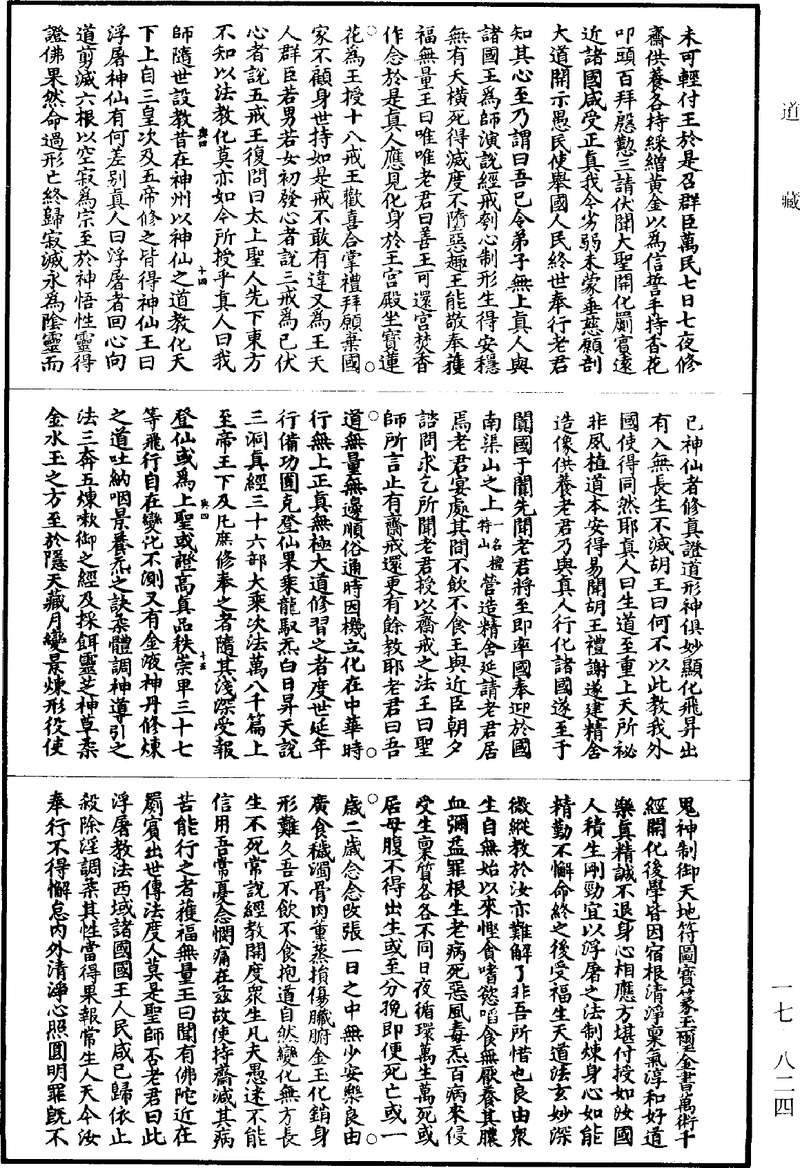 道藏
未可輕付王於是召群臣萬民七日七夜修
齋供養各持綵繒黃金以為信誓手持香花
叩頭百拜慇懃三請伏聞大聖開化罽賓遠
近諸國咸受正真我今劣弱未蒙垂慈願剖
大道開示愚民使舉國人民終世奉行老君
知其心至乃謂曰吾已令弟子無上真人與
諸國王為師演說經戒刳心制形生得安穩
無有夭橫死得滅度不墮惡趣王能敬奉獲
福無量王曰唯唯老君曰善王可還宮焚香
作念於是真人應見化身於王宮殿坐寶蓮
花為王授十八戒王歡喜合掌禮拜願棄國
家不顧身世持如是戒不敢有違又為王天
人群臣若男若女初發心者說三戒為已伏
心者說五戒王復問曰太上聖人先下東方
不知以法教化莫亦如今所授乎真人曰我
師隨世設教昔在神州以神仙之道教化天
下上自三皇次及五帝修之皆得神仙王曰
浮屠神仙有何差別真人曰浮屠者回心向
道剪滅六根以空寂為宗至於神悟性靈得
證佛果然命過形亡終歸寂滅永為陰靈而
已神仙者修真證道形神俱妙顯化飛昇出
有入無長生不滅胡王曰何不以此教我外
國使得同然耶真人曰生道至重上天所祕
非夙植道本安得易聞胡王禮謝遂建精舍
造像供養老君乃與真人行化諸國遂至于
闐國于闐先聞老君將至即率國奉迎於國
南渠山之上一名檀特山營造精舍延請老君居
焉老君宴處其間不飲不食王與近臣朝夕
諮問求乞所聞老君授以齋戒之法王曰聖
師所言止有齋戒還更有餘教耶老君曰吾
道無量無邊順俗通時因機立化在中華時
行無上正真無極大道修習之者度世延年
行備功圓克登仙果乘龍馭炁白日昇天說
三洞真經三十六部大乘次法萬八千篇上
至帝王下及凡庶修奉之者隨其淺深受報
登仙或為上聖或證高真品秩崇卑三十七
等飛行自在變化不測又有金液神丹修煉
之道吐納咽景養炁之訣柔體調神導引之
法三奔五煉嗽御之經及採餌靈芝神草柔
金水玉之方至於隱天藏月變景煉形役使
鬼神制御天地符圖寶篆玉璽金書萬術千
經開化後學皆因宿根清淨稟氣淳和好道
樂真精誠不退身心相應方堪付授如汝國
人積生剛勁宜以浮屠之法制煉身心如能
精勤不懈命終之後受福生天道法玄妙深
微縱教於汝亦難解了非吾所惜也良由眾
生自無始以來慳貪嗜慾啗食無厭養其膿
血彌益罪根生老病死惡風毒炁百病來侵
受生稟質各各不同日夜循環萬生萬死或
居母腹不得出生或至分挽即便死亡或一
歲二歲念念改張一日之中無少安樂良由
廣食穢濁骨肉葷蒸損傷臟腑金玉化銷身
形難久吾不飲不食抱道自然變化無方長
生不死常說經教開度眾生凡夫愚迷不能
信用吾常憂念憫痛在茲故使持齋滅其病
苦能行之者獲福無量王曰聞有佛陀近在
罽賓出世傳法度人莫是聖師否老君曰此
浮屠教法西域諸國國王人民咸已歸依止
殺除淫調柔其性當得果報常生人天今汝
奉行不得懈怠內外清淨心照圓明罪既不
一七　八二四